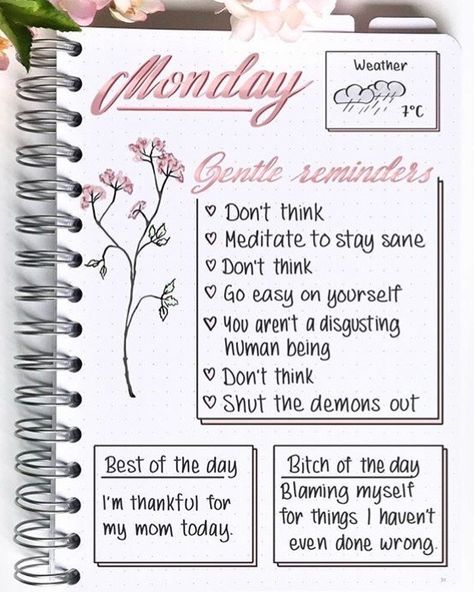 Monday
Weather
7°C
Gentle reminders
♡ Don't think
♡ Meditate to stay sane
♡ Don't think
♡ Go easy on yourself
♡ You aren't a disgusting
human being
♡ Don't think
♡ Shut the demons out
Best of the day
I'm thankful for
my mom today.
Bitch of the day
Blaming myself
for things I haven't
even done wrong.